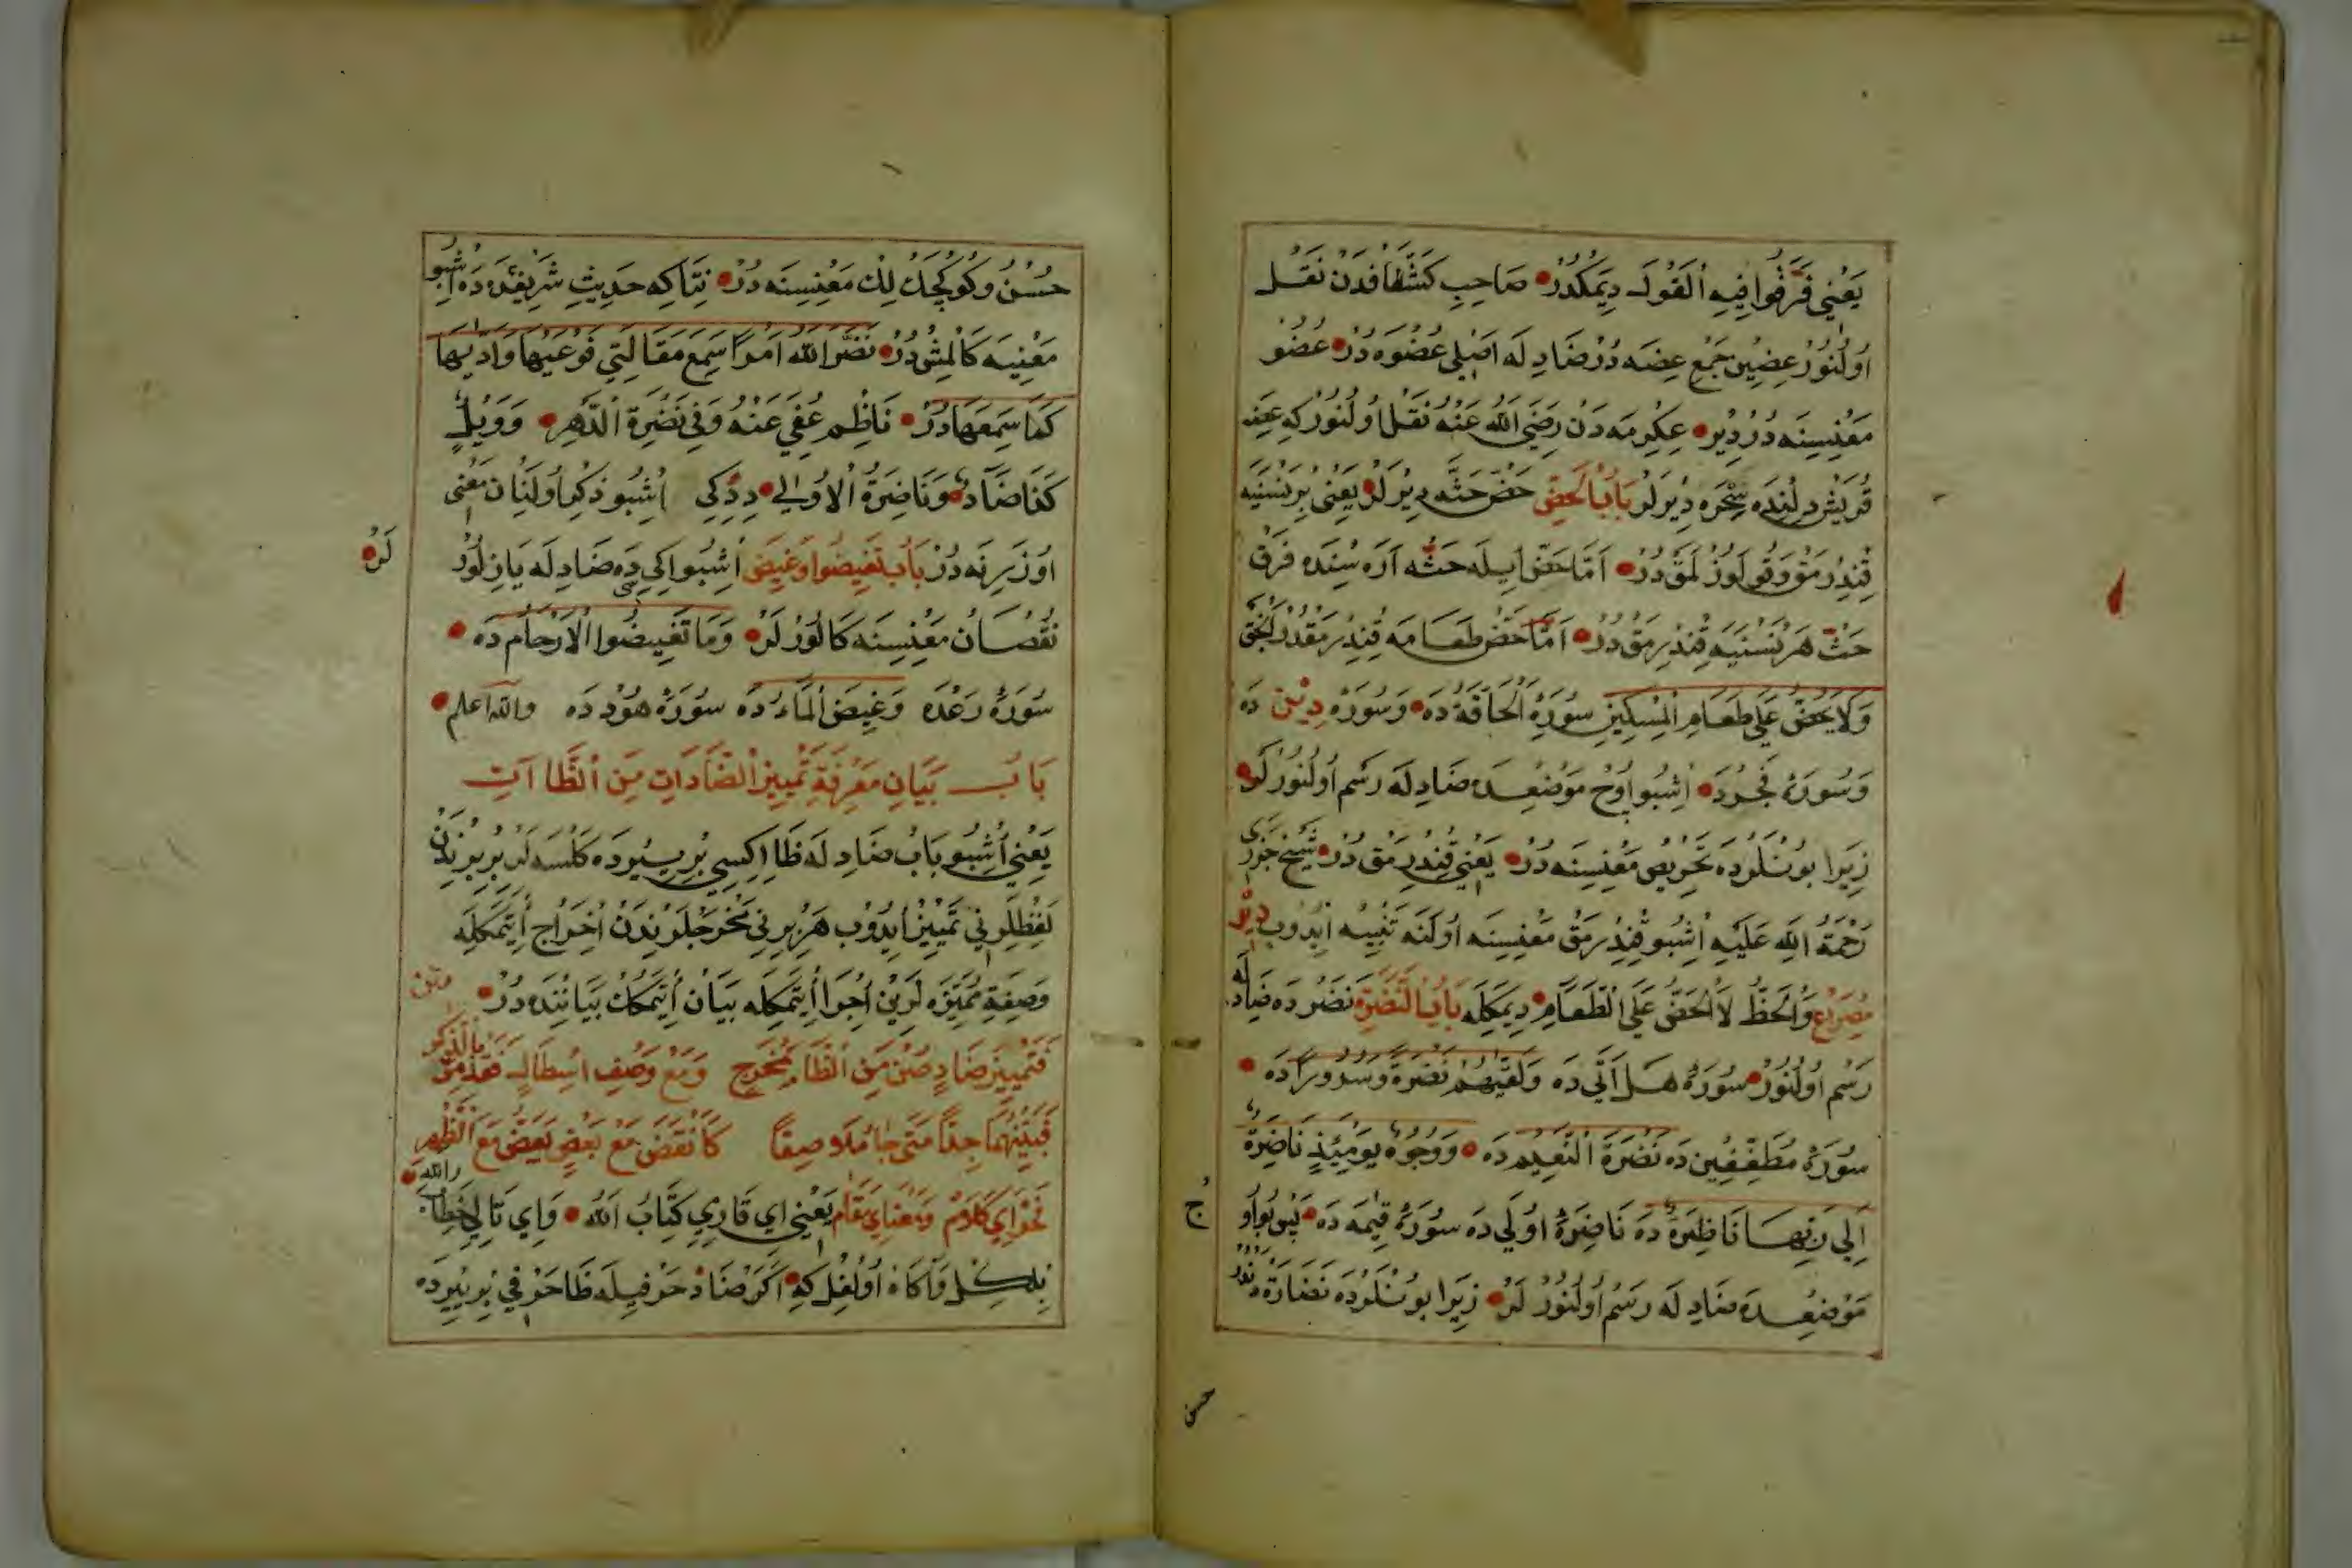 يَعْنِي فَرَّقُوا فِيهِ اَلْقَوْلَ دِيمَكْدُرْ صَاحِبِ كَشَّافْدَنْ نَقْلْ
اُولُنُورْ عِضِينْ جَمْعِ عِضَه دُرْ ضَادِلَه اَصْلِي عُضْوَه دُرْ عُضْو
مَعْنِسِنَه دُرْ دِيرْ عِكْرِمَه دَنْ رَضِيَ اللّٰهُ عَنْهُ نَقْلْ اُولُنُورْكِه عِضَه
قُرَيْشْ دِلِنْدَه سِحْرَه دِيرْلَرْ بَابُ الْحَضِّ حَضّ حَثَّه دِيرْلَرْ يَعْنِي بِرْ نَسْنَيَه
قِنْدِرْمَقْ وَقُولَوُزْلَمَقْ دُرْ اَمَّا حَضّ اِيلَه حَثَّه آرَه سِنْدَه فَرْق
حَثّ هَرْ نَسْنَيَه قِنْدِرْمَقْ دُرْ اَمَّا حَضّ طَعَامَه قِنْدِرْمَقْدُرْ
وَلَا يَحُضُّ عَلَى طَعَامِ الْمِسْكِينِ سُورَهٔ الْحَاقَّه دَه وَسُورَهٔ دِينْ دَه
وَسُورَهٔ فَجْرْدَه اُشْبُو اُوچْ مَوْضِعْدَه ضَادِلَه رَسْم اُولُنُورْلَرْ
زِيرَا بُونْلَرْدَه تَحْرِيص مَعْنِسِنَه دُرْ يَعْنِي قِنْدِرْمَقْ دُرْ شَيْخ جَزَرِي
رَحْمَةُ اللّٰهِ عَلَيْهِ اُشْبُو قِنْدِرْمَقْ مَعْنِسِنَه اُولَنَه تَنْبِيه اِيدُوب دِيرْ
مِصْرَاع وَالْحَظُّ لَا الْحَضُّ عَلَى الطَّعَامِ دِيمَكِلَه بَابُ النَّضْرَةِ نَضْرَدَه ضَادِلَه
رَسْم اُولُنُورْ سُورَهٔ هَلْ اَتَى دَه وَلَقّٰيهُمْ نَضْرَةً وَسُرُورًا دَه
سُورَهٔ مُطَفِّفِينْ دَه نَضْرَةَ النَّعِيمِ دَه وَوُجُوهٌ يَوْمَئِذٍ نَاضِرَةٌ
اِلَى رَبِّهَا نَاظِرَةٌ دَه نَاضِرَةٌ اُولَى دَه سُورَهٔ قِيمَه دَه پَس بُو اُو
ج
مَوْضِعْدَه ضَادِلَه رَسْم اُولُنُورْلَرْ زِيرَا بُونْلَرْدَه نَضَارَة
حسن
حُسْنْ وَكُوكْچَكْلِكْ مَعْنِسِنَه دُرْ نِتَاكِه حَدِيثِ شَرِيفْدَه دَه اُشْبُو
مَعْنِيَه كَلْمِشْدُرْ نَضَّرَ اللّٰهُ امْرَأً سَمِعَ مَقَالَتِي فَوَعَيهَا وَاَدّٰيهَا
كَمَا سَمِعَهَا دُرْ نَاظِم عُفِيَ عَنْهُ وَفِي نَضْرَةِ الدَّهْرِ وَوَيْلٌ
كَفَا ضَادٌ وَنَاضِرَةُ الْاُولَى دِدِكِي اُشْبُو ذِكْر اُولَنَان مَعْنَى
لَرْ
اُوزَرِنَه دُرْ بَابُ تَغِيضُوا وَغِيضَ اُشْبُو اِكِي سِي دَه ضَادِلَه يَازِلُورْ
نُقْصَان مَعْنِسِنَه كَلُورْلَرْ وَمَا تَغِيضُوا الْاَرْحَامُ دَه
سُورَهٔ رَعْدَه وَغِيضَ الْمَاءُ دَه سُورَهٔ هُودْدَه وَاللّٰه اعلم
بَابُ بَيَانِ مَعْرِفَةِ تَمْيِيزِ الضَّادَاتِ مِنَ الظَّاآتِ
يَعْنِي اُشْبُو بَابْ ضَادِلَه ظَا اِكِسِي بِرْ يِرْدَه كَلْسَه لَرْ بِرْبِرِنْدَنْ
لَفْظِلَرِنِي تَمْيِيز اِيدُوب هَرْ بِرِنِي مَخْرَجْلَرِنْدَنْ اِخْرَاج اِتْمَكِلَه
وَصِفَةِ مُمَيِّزَه لَرِينْ اِجْرَا اِتْمَكِلَه بَيَانْ اِتْمَكْ بَيَانِنْدَه دُرْ متن
فَتَمْيِيزَ ضَادٍ صُنْ مِنَ الظَّاءِ مَخْرَجٍ وَمَعْ وَصْفِ اسْتِطَالٍ فَخُذْ مِنْ بِالذِّكْرِ
فَبَيِّنْهُمَا جِدًّا مَتَى جَا مُلَاصِقًا كَاَنْقَضَ مَعْ بَعْضٍ يَعَضُّ مَعَ الظَّهْرِ
نَحْو اَي كَلَام وَمَعْنَا اَي مَقَام يَعْنِي اَي قَارِئِ كِتَابُ اللّٰه وَاَي تَالِي خِطَابُ الله
بِلْكِلْ وَآكَاهْ اُولْغِلْ كِه اَكَرْ ضَادْ حَرْفِيلَه ظَا حَرْفِي بِرْ يِرْدَه